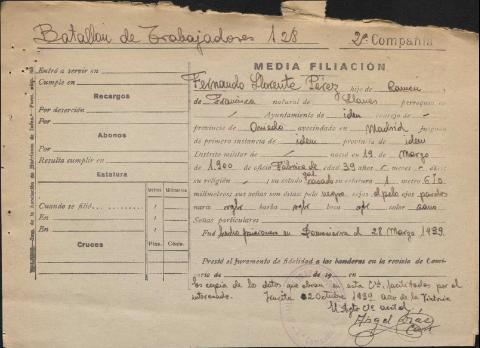 Batallón de Trabajadores 128 2ª Compañía
MEDIA FILIACIÓN
Entró a servir en
Cumple en
Recargos
Por deserción
Por
Abonos
Por
Resulta cumplir en
Estatura
Metros Milímetros
Cuando se filió
En
En
Cruces
Ptas. Cénts.
Fernando Llorente Pérez hijo de Ramón
de Francisca natural de Llanes parroquia
Ayuntamiento de idem concejo
provincia de Oviedo avecindado en Madrid Juzgado
de primera instancia de idem provincia de idem
Distrito militar de nació en 19 de Marzo
de 1900 de oficio edad 39 años meses días
su religión su estado casado su estatura 1 metro 610
milímetros sus señas son éstas: pelo negro cejas al pelo ojos pardos
nariz barba boca color sano
Señas particulares
Fué hecho prisionero en 28 Marzo 1939.
Prestó el juramento de fidelidad a las banderas en la revista de Comi-
sario de de 19 en
Es copia de los datos que obran en esta Cía. facilitados por el
interesado. 02 Octubre 1939 Año de la Victoria
El
Angel